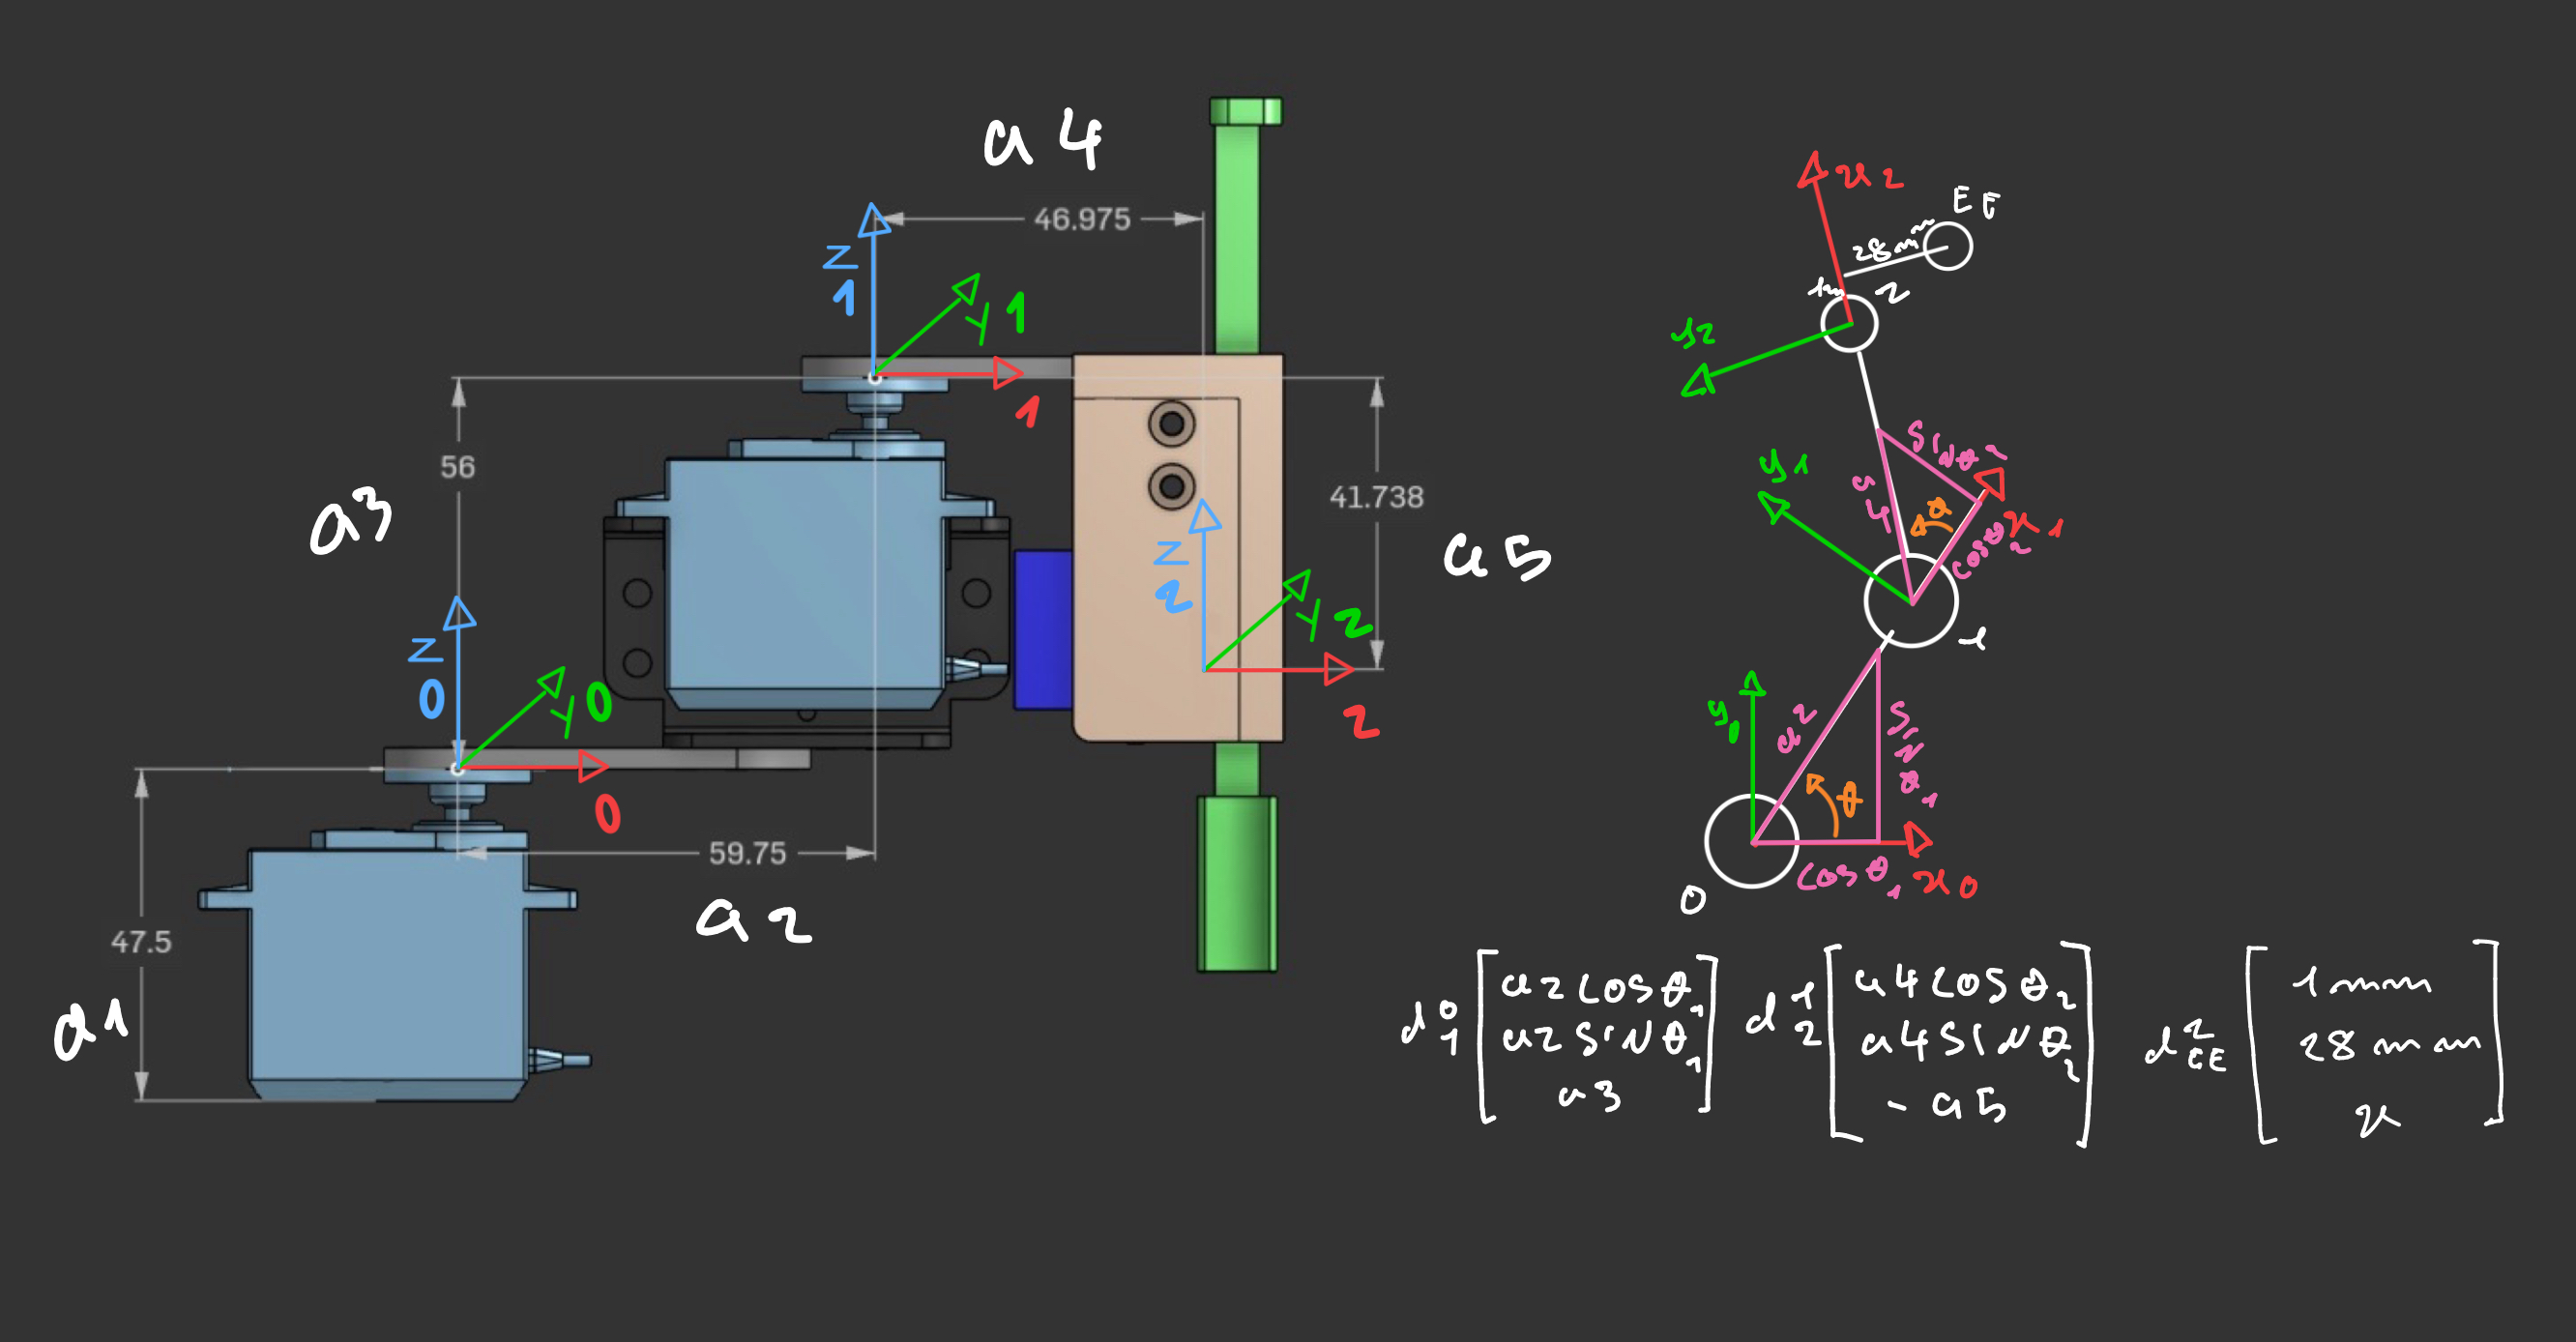 a4
46.975
z
1
y1
1
56
a3
41.738
a5
z
2
y2
2
z
0
y0
0
59.75
a2
47.5
a1
x2
EE
28mm
2
y2
y1
sinθ2
a4
θ
cosθ2
x1
1
y0
a2
sinθ1
θ
cosθ1
x0
0
d 0 1 [ a2cosθ1 a2sinθ1 a3 ]
d 1 2 [ a4cosθ2 a4sinθ2 -a5 ]
d 2 EE [ 1mm 28mm x ]